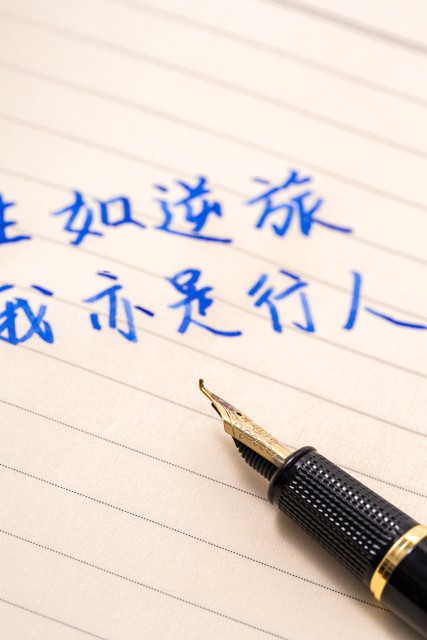 生如逆旅
我亦是行人